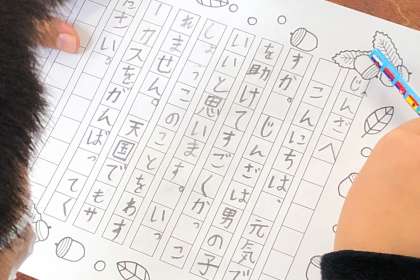 じんざへ
こんにちは、元気で
すか。じんざは男の子
を助けてすごくかっこ
いいと思います。いっ
しょうこのことをわす
れません。天国でもサ
ーカスをがんばってく
ださい。